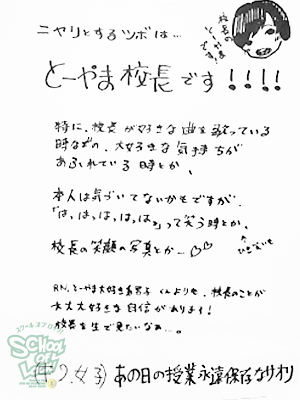 ニヤリとするツボは…
校長の
とーやま
です!
とーやま校長です!!!!
特に、校長が好きな曲を歌っている
時などの、大好きな気持ちが
あふれている時とか、
本人は気づいてないかもですが、
「はっはっはっはっは」って笑う時とか、
校長の笑顔の写真とか…♡♡
RN.とーやま大好き系男子 くんよりも、校長のことが
大大大好きな自信があります!
校長を生で見たいなぁ…。
スクール オブ ロック!
SCHOOL
OF
LOCK!
女子) あの日の授業永遠保存なサオリ